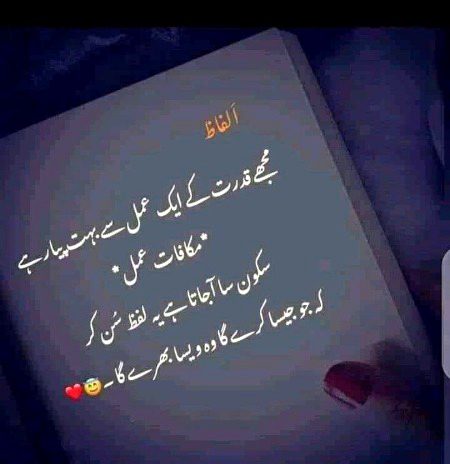 اَلفاظ
مجھے قدرت کے ایک عمل سے بہت پیار ہے
*مکافات عمل*
سکون سا آجاتا ہے یہ لفظ سُن کر
کہ جو جیسا کرے گا وہ ویسا بھرے گا۔😇❤️